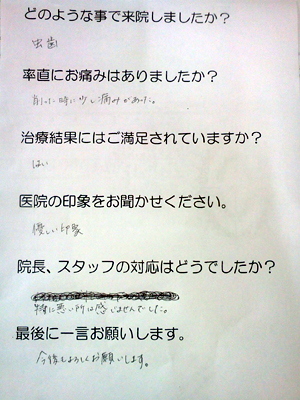 どのような事で来院しましたか？
虫歯
率直にお痛みはありましたか？
削った時に少し痛みがあった。
治療結果にはご満足されていますか？
はい
医院の印象をお聞かせください。
優しい印象
院長、スタッフの対応はどうでしたか？
特に悪い所は感じませんでした。
最後に一言お願いします。
今後もよろしくお願いします。